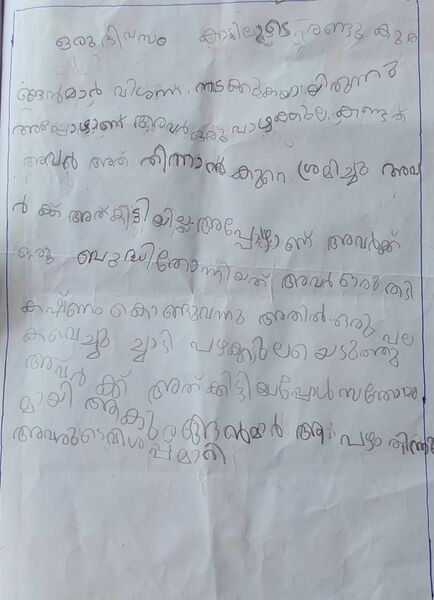 ഒരു ദിവസം കാട്ടിലൂടെ രണ്ടു കുര
ങ്ങൻമാർ വിശന്ന് നടക്കുകയായിരുന്നു
അപ്പോഴാണ് അവർ ഒരു വാഴക്കുല കണ്ടത്
അവർ അത് തിന്നാൻ കുറെ ശ്രമിച്ചു അവ
ർ ക്ക് അത് കിട്ടിയില്ല അപ്പോഴാണ് അവർക്ക്
ഒരു ബുദ്ധിതോന്നിയത് അവർ ഒരു തടി
കഷ്ണം കൊണ്ടുവന്നു അതിൽ ഒരു പല
കവെച്ചു ചാടി പഴക്കുലയെടുത്തു
അവർ ക്ക് അത് കിട്ടിയപ്പോൾ സന്തോഷ
മായി ആ കുരങ്ങൻമാർ ആ പഴം തിന്നു
അവരുടെ വിശപ്പ് മാറി